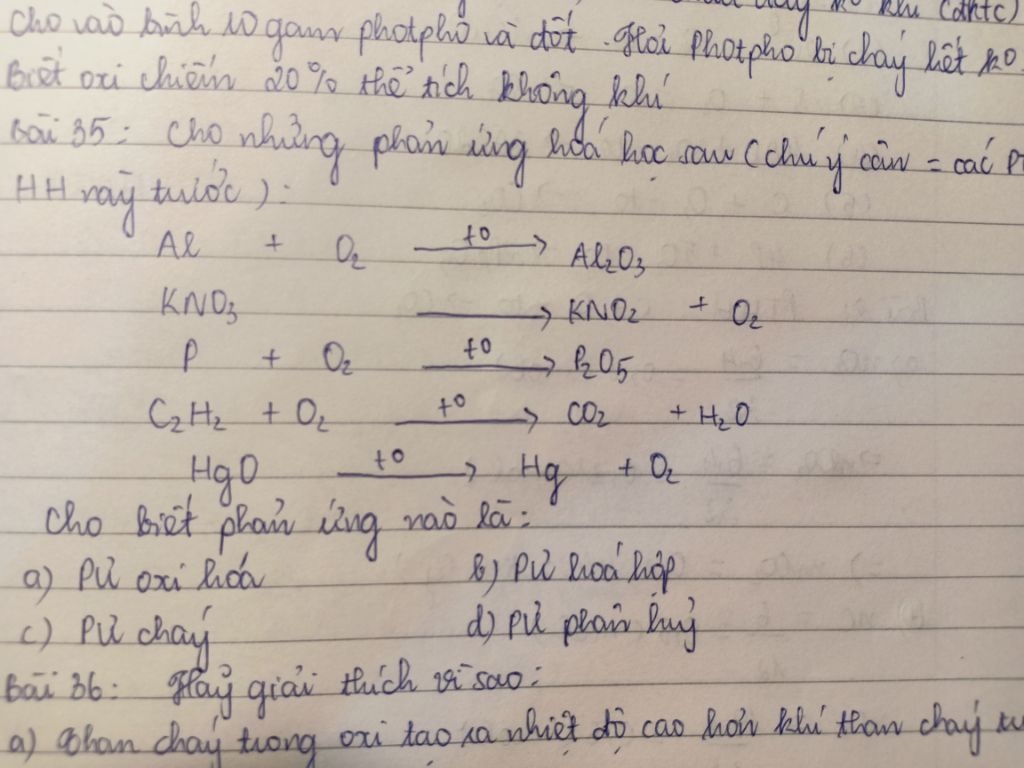 khí (đktc)
Cho vào bình 10 gam photpho và đốt. Hỏi Photpho bị cháy hết ko.
Biết oxi chiếm 20% thể tích không khí
Bài 35: Cho những phản ứng hoá học sau (chú ý cân = các
HH này trước):
Al + O₂ →(t⁰) Al₂O₃
KNO₃ → KNO₂ + O₂
P + O₂ →(t⁰) P₂O₅
C₂H₂ + O₂ →(t⁰) CO₂ + H₂O
HgO →(t⁰) Hg + O₂
Cho biết phản ứng nào là:
a) PƯ oxi hóa b) PƯ hoá hợp
c) PƯ cháy d) PƯ phân huỷ
Bài 36: Hãy giải thích vì sao:
a) Than cháy trong oxi tạo ra nhiệt độ cao hơn khi than cháy